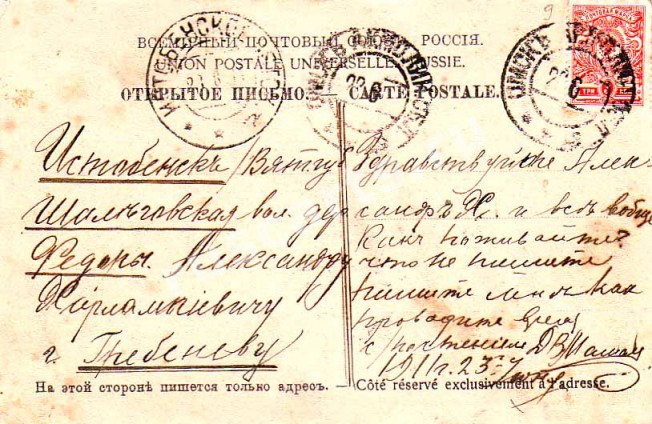 ВСЕМІРНЫЙ ПОЧТОВЫЙ СОЮЗЪ. РОССІЯ.
UNION POSTALE UNIVERSELLE. RUSSIE.
ОТКРЫТОЕ ПИСЬМО. — CARTE POSTALE.
Истобенскъ / Вят. губ
Шалѣговская вол. дер
Федоры. Александру
Харлампіевичу
г. Гребеневу
Здравствуйте Алек-
сандръ Х. и всѣ вообще
Какъ поживайте?
что не пишите
пишите мнѣ как
проводите время
с почтеніем
1911 г. 23
На этой сторонѣ пишется только адресъ. — Côté réservé exclusivement à l'adresse.
ОМСКЪ
22 6
ОМСКЪ
22 6
ТРИ